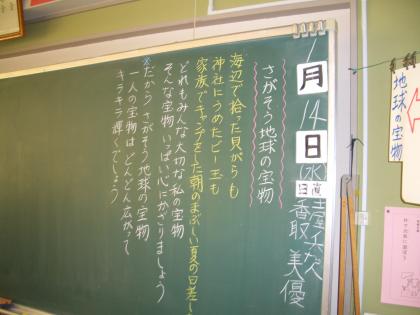 1月14日(水)
日直
香取 美優
さがそう地球の宝物
海辺で拾った貝がらも
神社にうめたビー玉も
家族でキャンプをした朝のまぶしい夏の日差し
どれもみんな大切な私の宝物
そんな宝物いっぱい心にかざりましょう
だから さがそう地球の宝物
一人の宝物は どんどん広がて
キラキラ輝くでしょう
地球の宝物